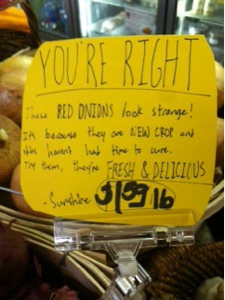 YOU'RE RIGHT
These RED ONIONS look strange!
It's because they are NEW CROP and
haven't had time to cure.
Try them, they're FRESH & DELICIOUS
-Sunshine $1.99/lb